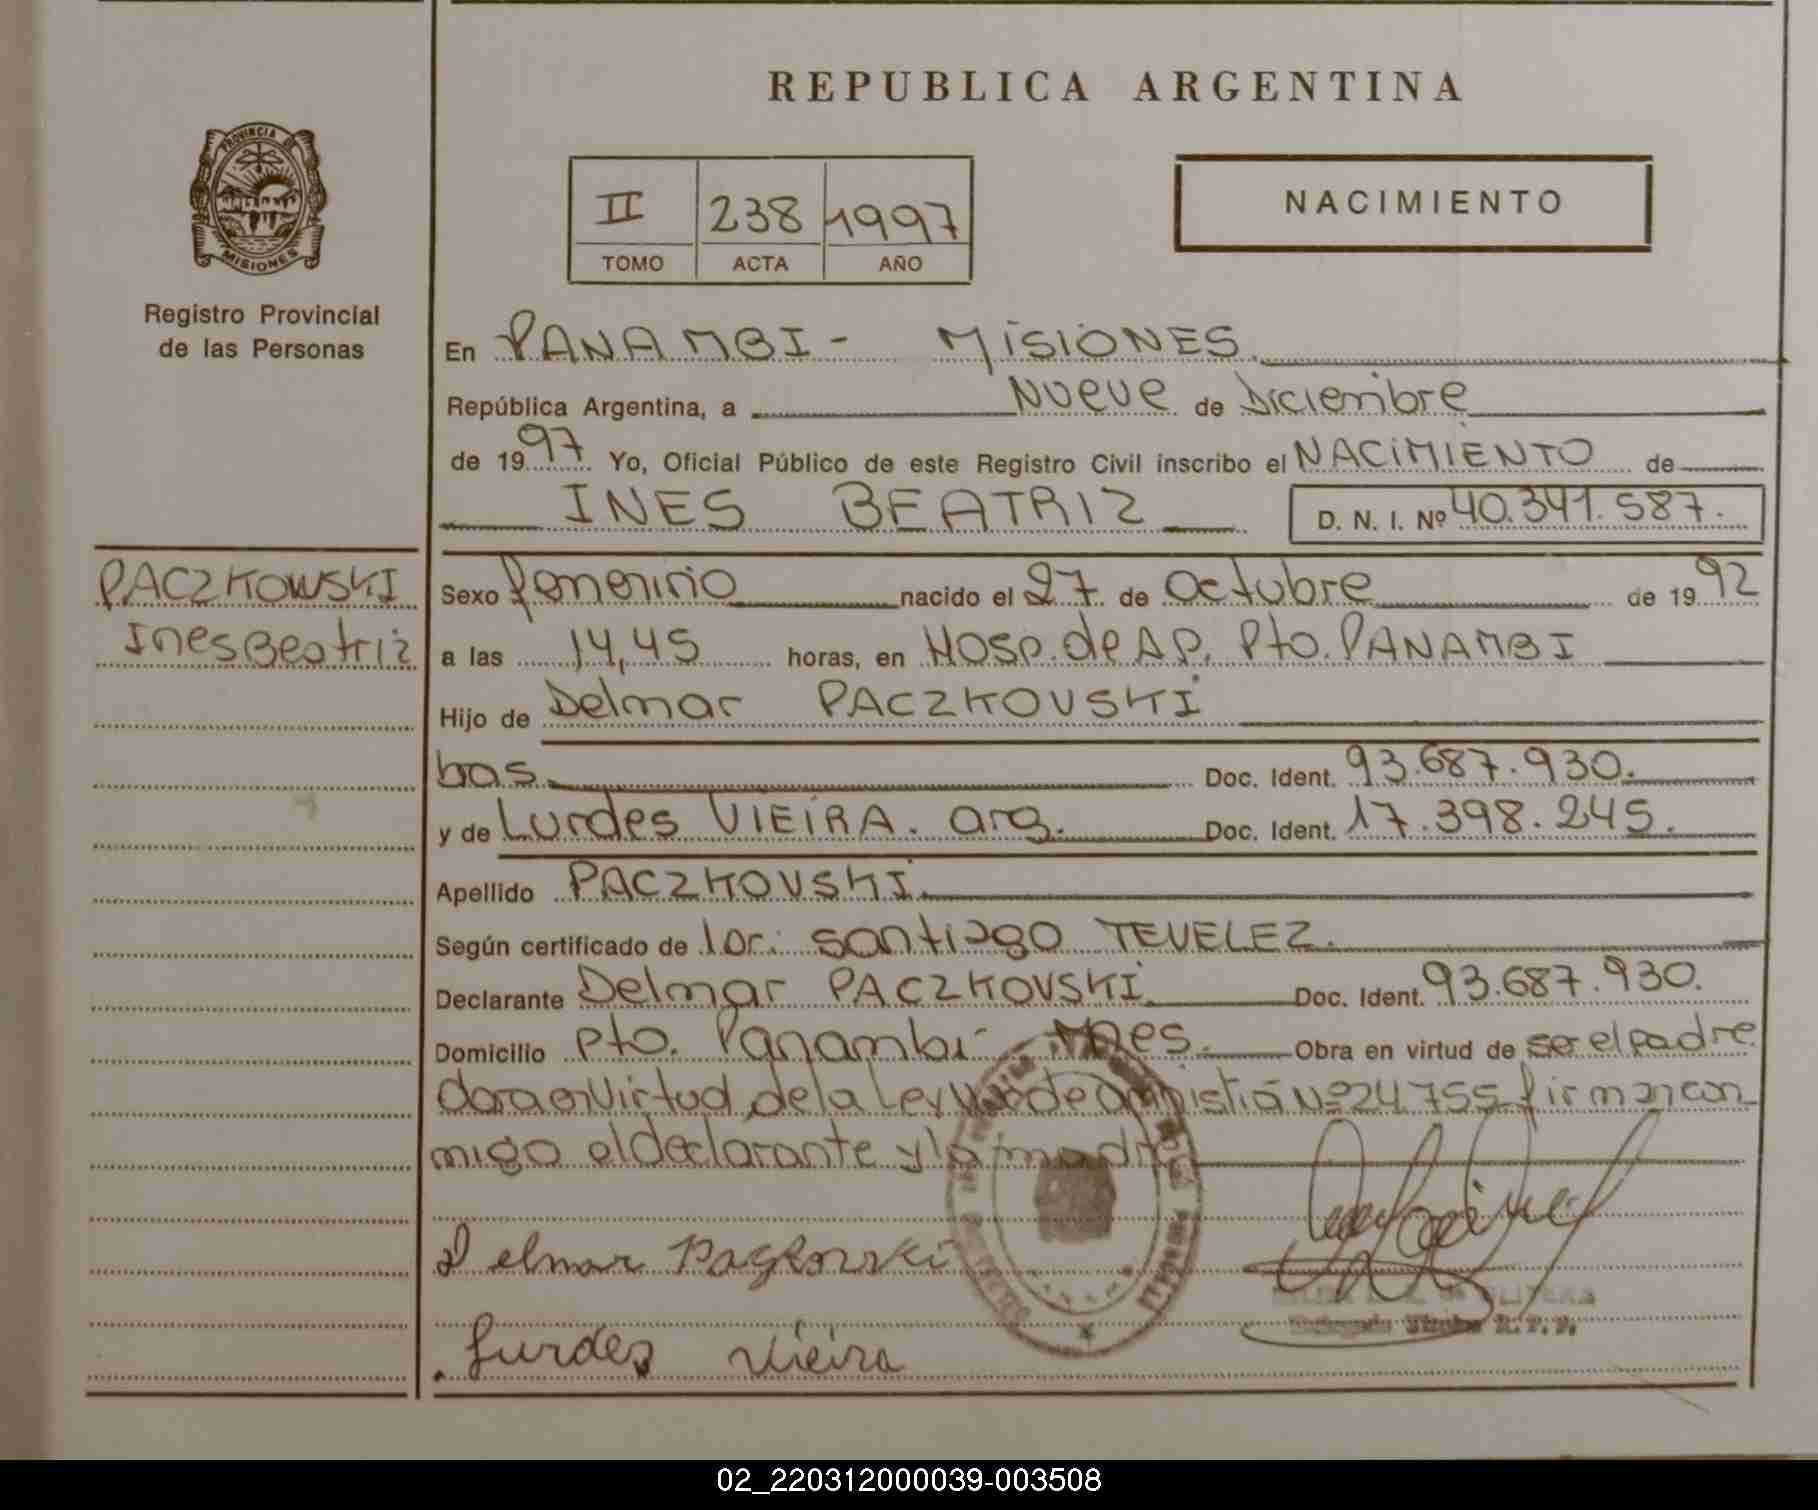 REPUBLICA ARGENTINA
PROVINCIA DE
MISIONES
Registro Provincial
de las Personas
II 238 1997
TOMO ACTA AÑO
NACIMIENTO
En PANAMBI - MISIONES
República Argentina, a Nueve de Diciembre
de 1997 Yo, Oficial Público de este Registro Civil inscribo el NACIMIENTO de
INES BEATRIZ D. N. I. Nº 40.341.587.
PACZKOWSKI
Ines Beatriz
Sexo femenino nacido el 27 de Octubre de 1992
a las 14,45 horas, en Hosp. de AP. Pto. PANAMBI
Hijo de Delmar PACZKOVSKI
bras. Doc. Ident. 93.687.930.
y de Lurdes VIEIRA. arg. Doc. Ident. 17.398.245.
Apellido PACZKOVSKI
Según certificado de Santiago TEVELEZ.
Declarante Delmar PACZKOVSKI Doc. Ident. 93.687.930.
Domicilio Pto. Panambi - Mnes. Obra en virtud de ser el padre
en virtud de la Ley de amnistia Nº 24755 firman con
migo el declarante y la madre
Delmar
Lurdes Vieira
02_220312000039-003508